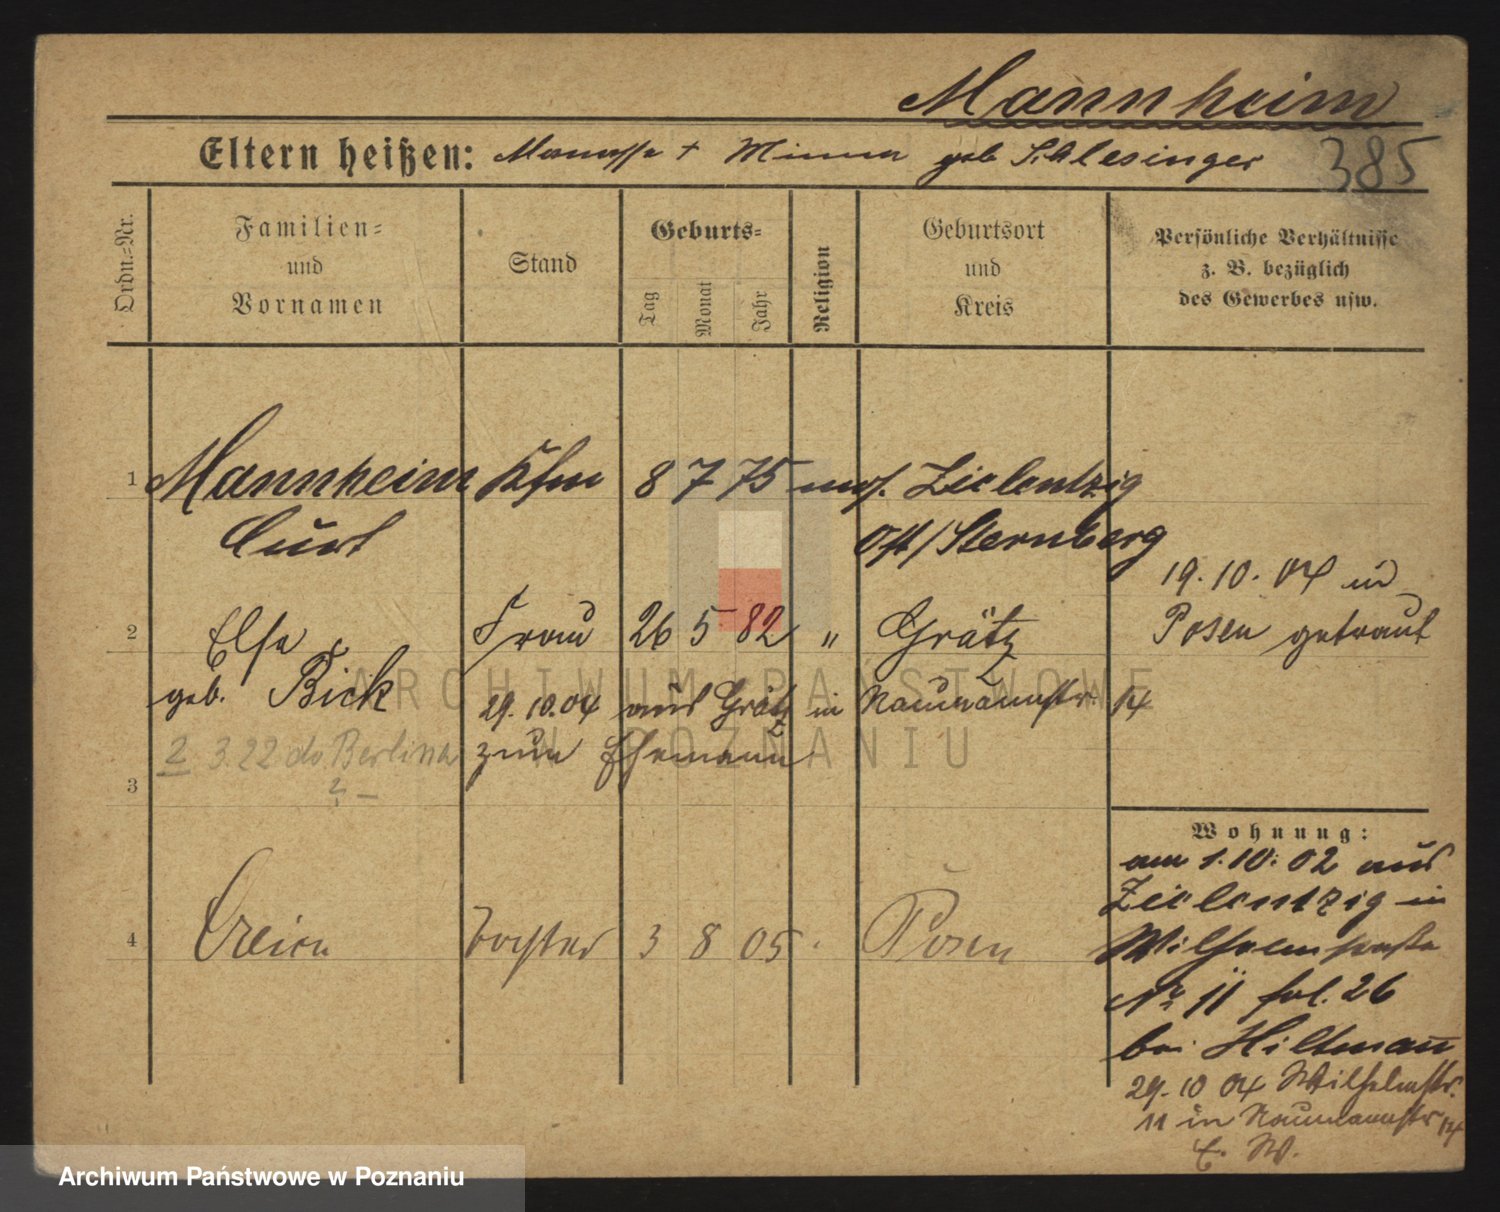 Mannheim
Eltern heißen: Manasse + Minna geb Schlesinger 385
Ordn.-Nr.
Familien-
und
Vornamen
Stand
Geburts-
Tag
Monat
Jahr
Religion
Geburtsort
und
Kreis
Persönliche Verhältnisse
z. B. bezüglich
des Gewerbes usw.
1 Mannheim Kfm 8 7 75 mos. Zielentzig
Curt Ost/Sternberg
19.10.04 in
Posen getraut
2 Else Frau 26 5 82 " Grätz
geb. Bick 29.10.04 aus Grätz in Naumannstr. 14
zum Ehemann
2 3.22 do Berlina
?
3
4 Tochter 3 8 05 Posen
Wohnung:
am 1.10.02 aus
Zielentzig in
Wilhelmstraße
Nr 11 fol. 26
bei Hiltmann
29.10 04 Wilhelmstr.
11 in Naumannstr 14
E. W.
ARCHIWUM PAŃSTWOWE
W POZNANIU
Archiwum Państwowe w Poznaniu